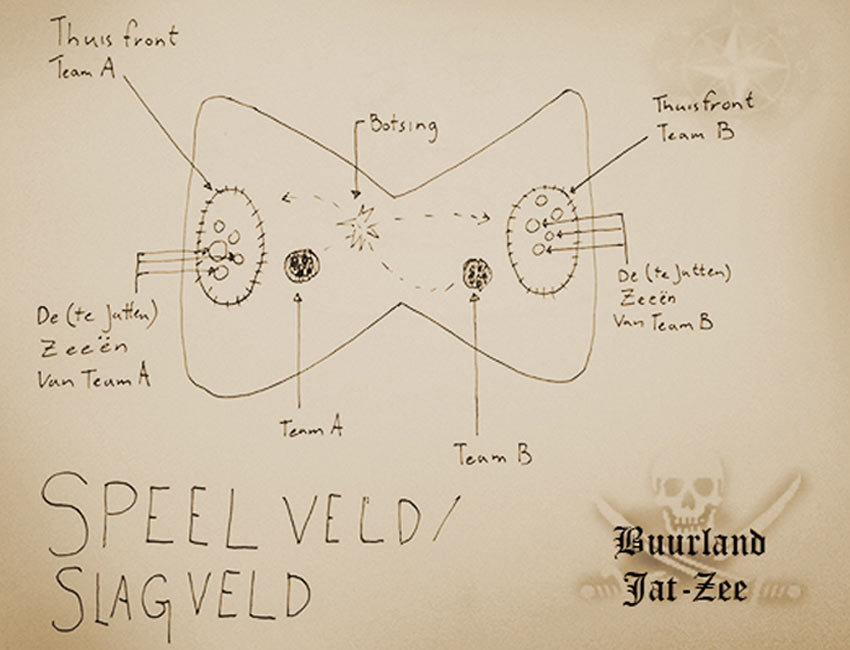 Thuis front
Team A
Botsing
Thuisfront
Team B
De (te Jatten)
Zeeën
Van Team A
De (te Jatten)
Zeeën
Van Team B
Team A
Team B
SPEEL VELD/
SLAGVELD
Buurland
Jat-Zee